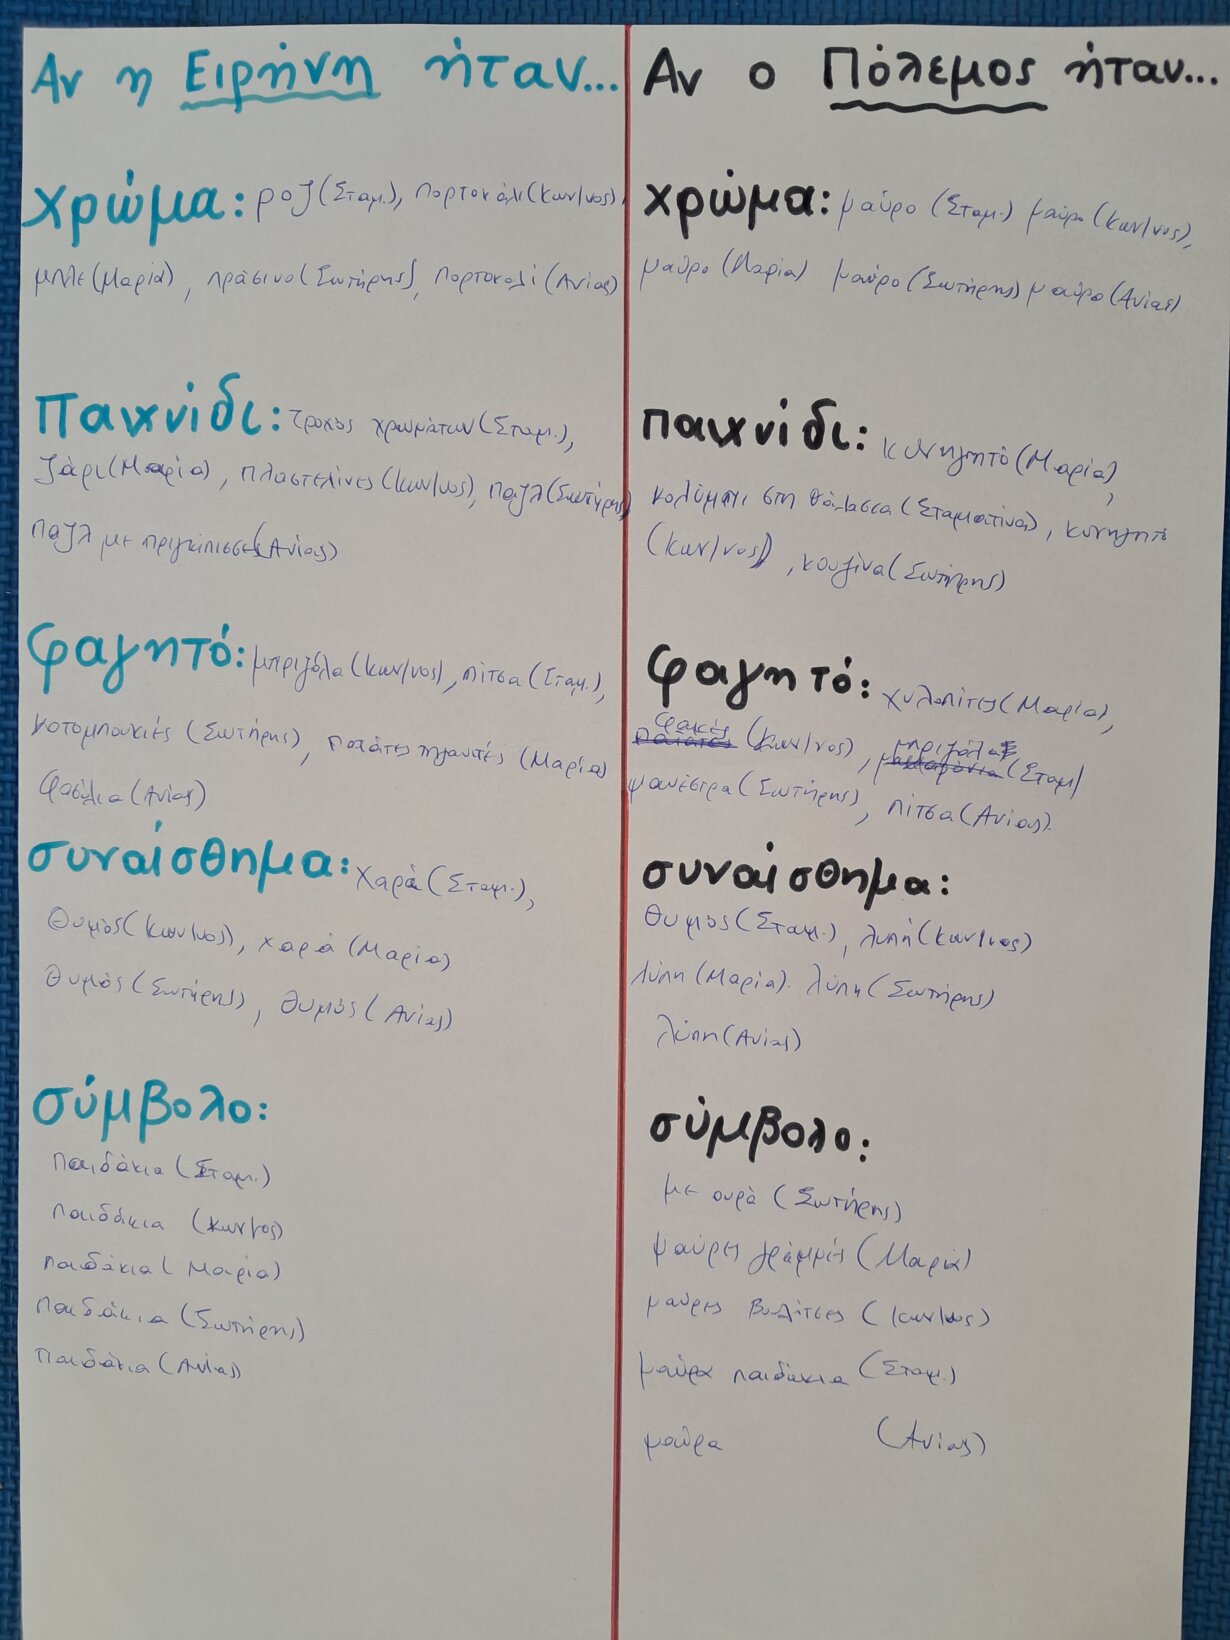 Αν η Ειρήνη ήταν...
χρώμα: ροζ (Σταμ.), πορτοκάλι (Κων/νος),
μπλε (Μαρία), πράσινο (Σωτήρης), πορτοκαλί (Ανίας)
Παιχνίδι: τροχός χρωμάτων (Σταμ.),
ζάρι (Μαρία), πλαστελίνες (Κων/νος), παζλ (Σωτήρης)
παζλ με πριγκίπισσες (Ανίας)
φαγητό: μπριζόλα (Κων/νος), πίτσα (Σταμ.),
κοτομπουκιές (Σωτήρης), πατάτες τηγανιτές (Μαρία)
Φασόλια (Ανίας)
συναίσθημα: χαρά (Σταμ.),
Θυμός (Κων/νος), χαρά (Μαρία)
θυμός (Σωτήρης), θυμός (Ανίας)
σύμβολο:
παιδάκια (Σταμ.)
παιδάκια (Κων/νος)
παιδάκια (Μαρία)
παιδάκια (Σωτήρης)
παιδάκια (Ανίας)
Αν ο Πόλεμος ήταν...
χρώμα: μαύρο (Σταμ.) μαύρο (Κων/νος),
μαύρο (Μαρία) μαύρο (Σωτήρης) μαύρο (Ανίας)
παιχνίδι: κυνηγητό (Μαρία),
κολύμπι στη θάλασσα (Σταματίνα), κυνηγητό
(Κων/νος), κουζίνα (Σωτήρης)
φαγητό: χυλοπίτες (Μαρία),
φακές
πατάτες (Κων/νος), μπριζόλα
μακαρόνια (Σταμ)
φανέστρα (Σωτήρης), πίτσα (Ανίας).
συναίσθημα:
θυμός (Σταμ.), λύπη (Κων/νος)
λύπη (Μαρία). λύπη (Σωτήρης)
λύπη (Ανίας)
σύμβολο:
με ουρά (Σωτήρης)
μαύρες γραμμές (Μαρία)
μαύρες βουλίτσες (Κων/νος)
μαύρα παιδάκια (Σταμ.)
μαύρα (Ανίας)